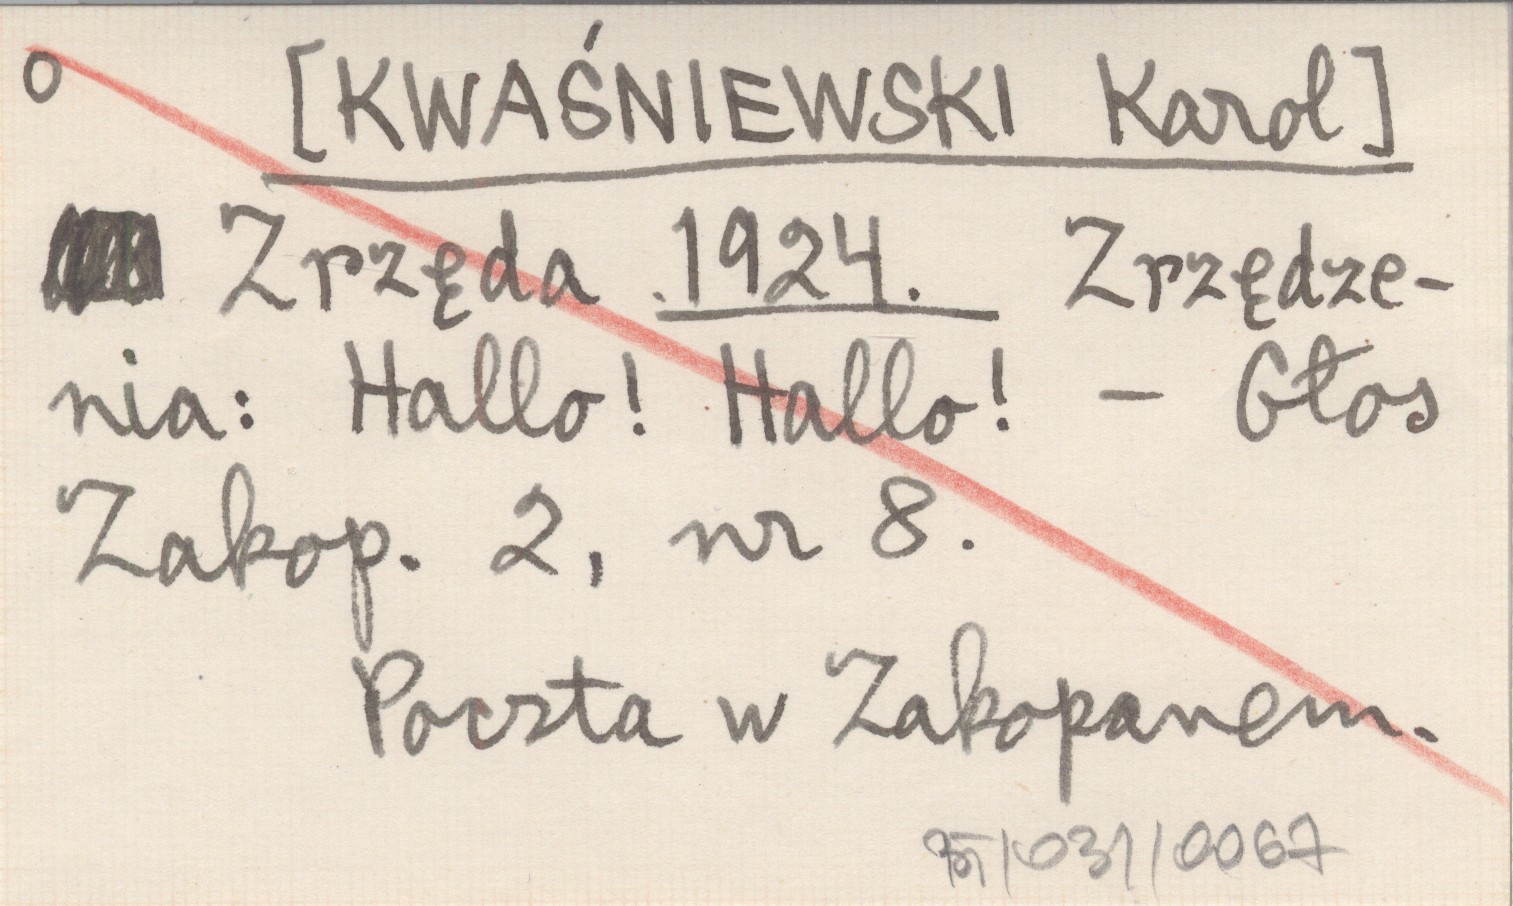 o [KWAŚNIEWSKI Karol]
Zrzęda 1924. Zrzędze-
nia: Hallo! Hallo! - Głos
Zakop. 2, nr 8.
Poczta w Zakopanem.
/031/0067